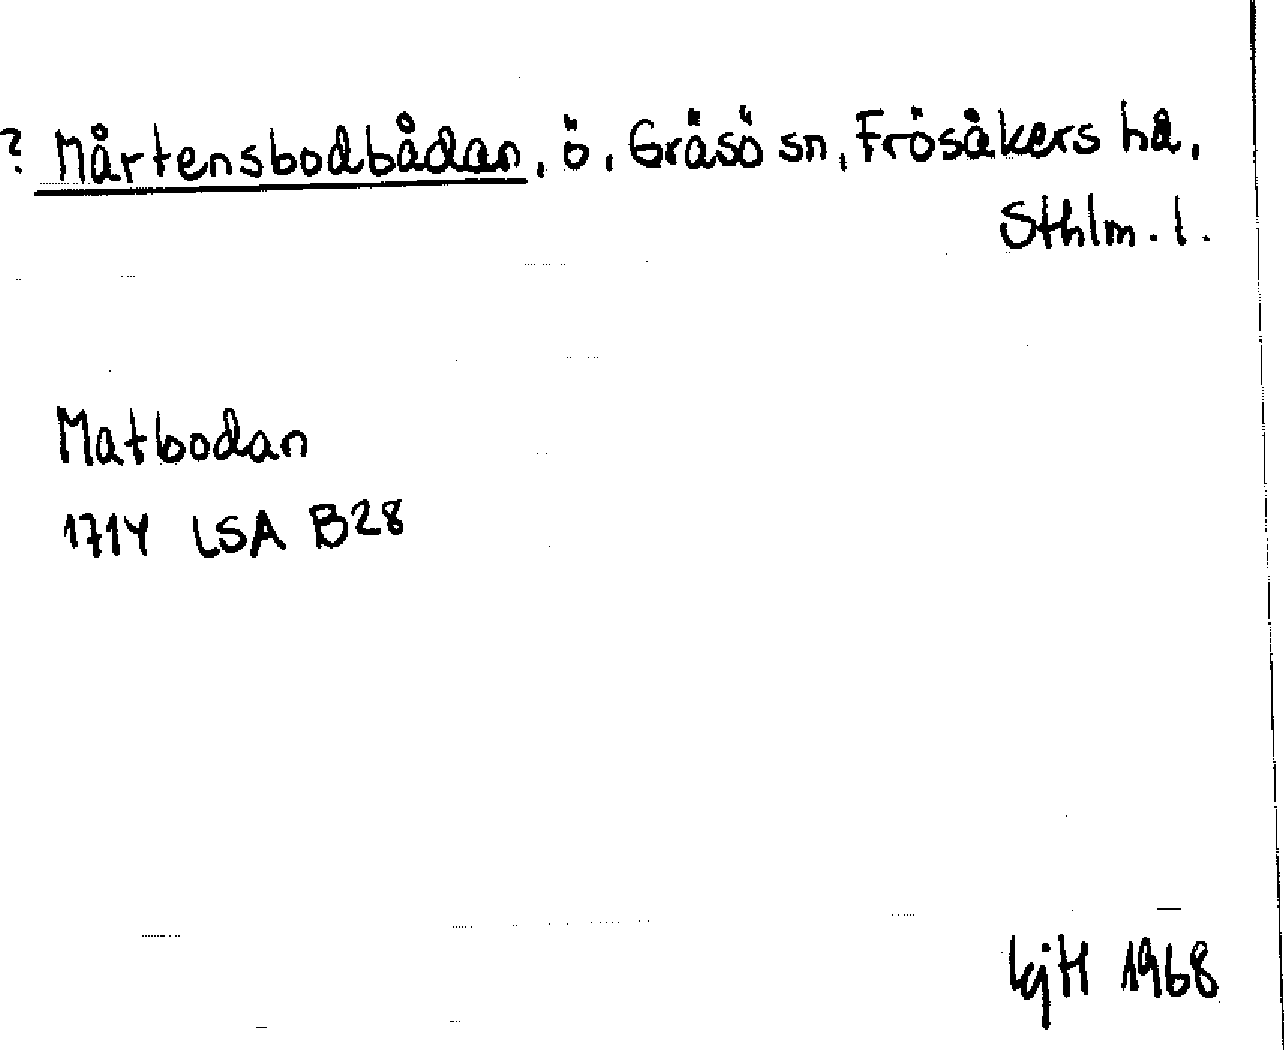 ? Mårtensbodbådan, ö, Gräsö sn, Frösåkers hd,
Sthlm. l.
Matbodan
1714 LSA B28
1968